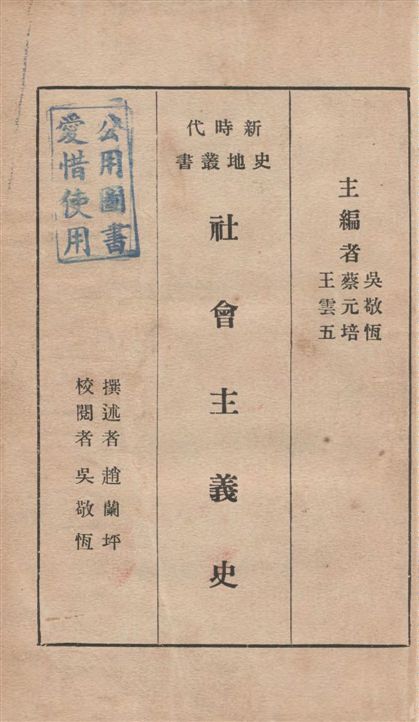 主編者
吳敬恆
蔡元培
王雲五
新時代
史地叢書
社會主義史
撰述者 趙蘭坪
校閱者 吳敬恆
公用圖書
愛惜使用